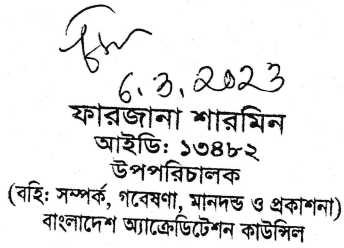 6.3.2023
ফারজানা শারমিন
আইডি: ১৩৪৮২
উপপরিচালক
(বহি: সম্পর্ক, গবেষণা, মানদন্ড ও প্রকাশনা)
বাংলাদেশ অ্যাক্রেডিটেশন কাউন্সিল